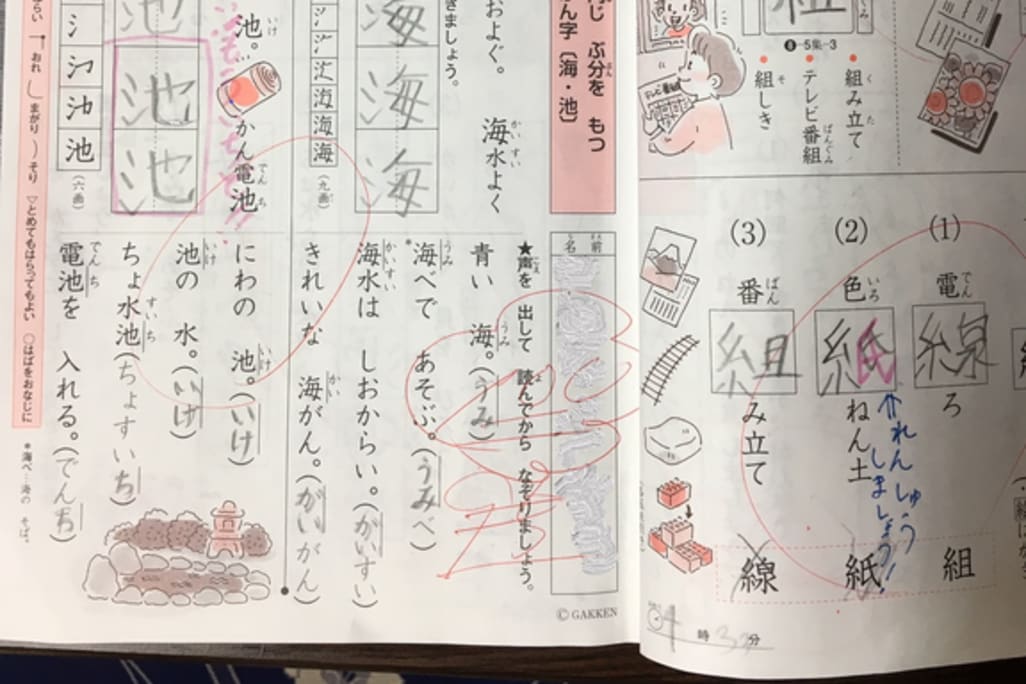 組み立て
テレビ番組
組しき
❽-5集-3
(1)
電線ろ
(2)
色紙ねん土
(3)
番組み立て
組
紙
線
↑れんしゅう
しましょう!
時
分
ぶ分を もつ
ん字〔海・池〕
名前
およぐ。
海水よく
きましょう。
海
海
海
海
海
海
(九画)
★声を 出して 読んでから なぞりましょう。
青い 海。(うみ)
*海べで あそぶ。(うみべ)
海水は しおからい。(かいすい)
きれいな 海がん。(かいがん)
池。
かん電池
池
池
池
池
池
(六画)
にわの 池。(いけ)
池の 水。(いけ)
ちょ水池(ちょすいち)
電池を 入れる。(でんち)
おれ
まがり
そり
▽とめてもはらってもよい
○はばをおなじに
*海べ…海の そば。
© GAKKEN